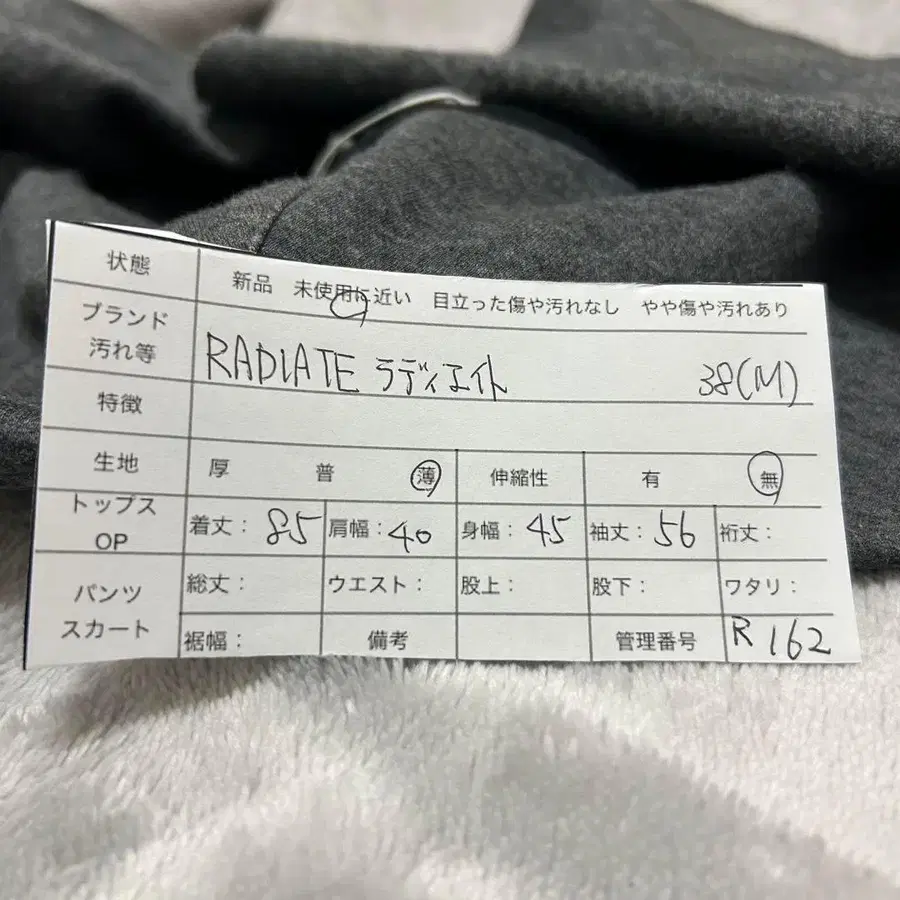 状態 新品 未使用に近い 目立った傷や汚れなし やや傷や汚れあり
ブランド
汚れ等 RADIATE ラディエイト 38(M)
特徴
生地 厚 普 薄 伸縮性 有 無
トップス
OP 着丈: 85 肩幅: 40 身幅: 45 袖丈: 56 裄丈:
パンツ
スカート 総丈: ウエスト: 股上: 股下: ワタリ:
裾幅: 備考 管理番号 R162